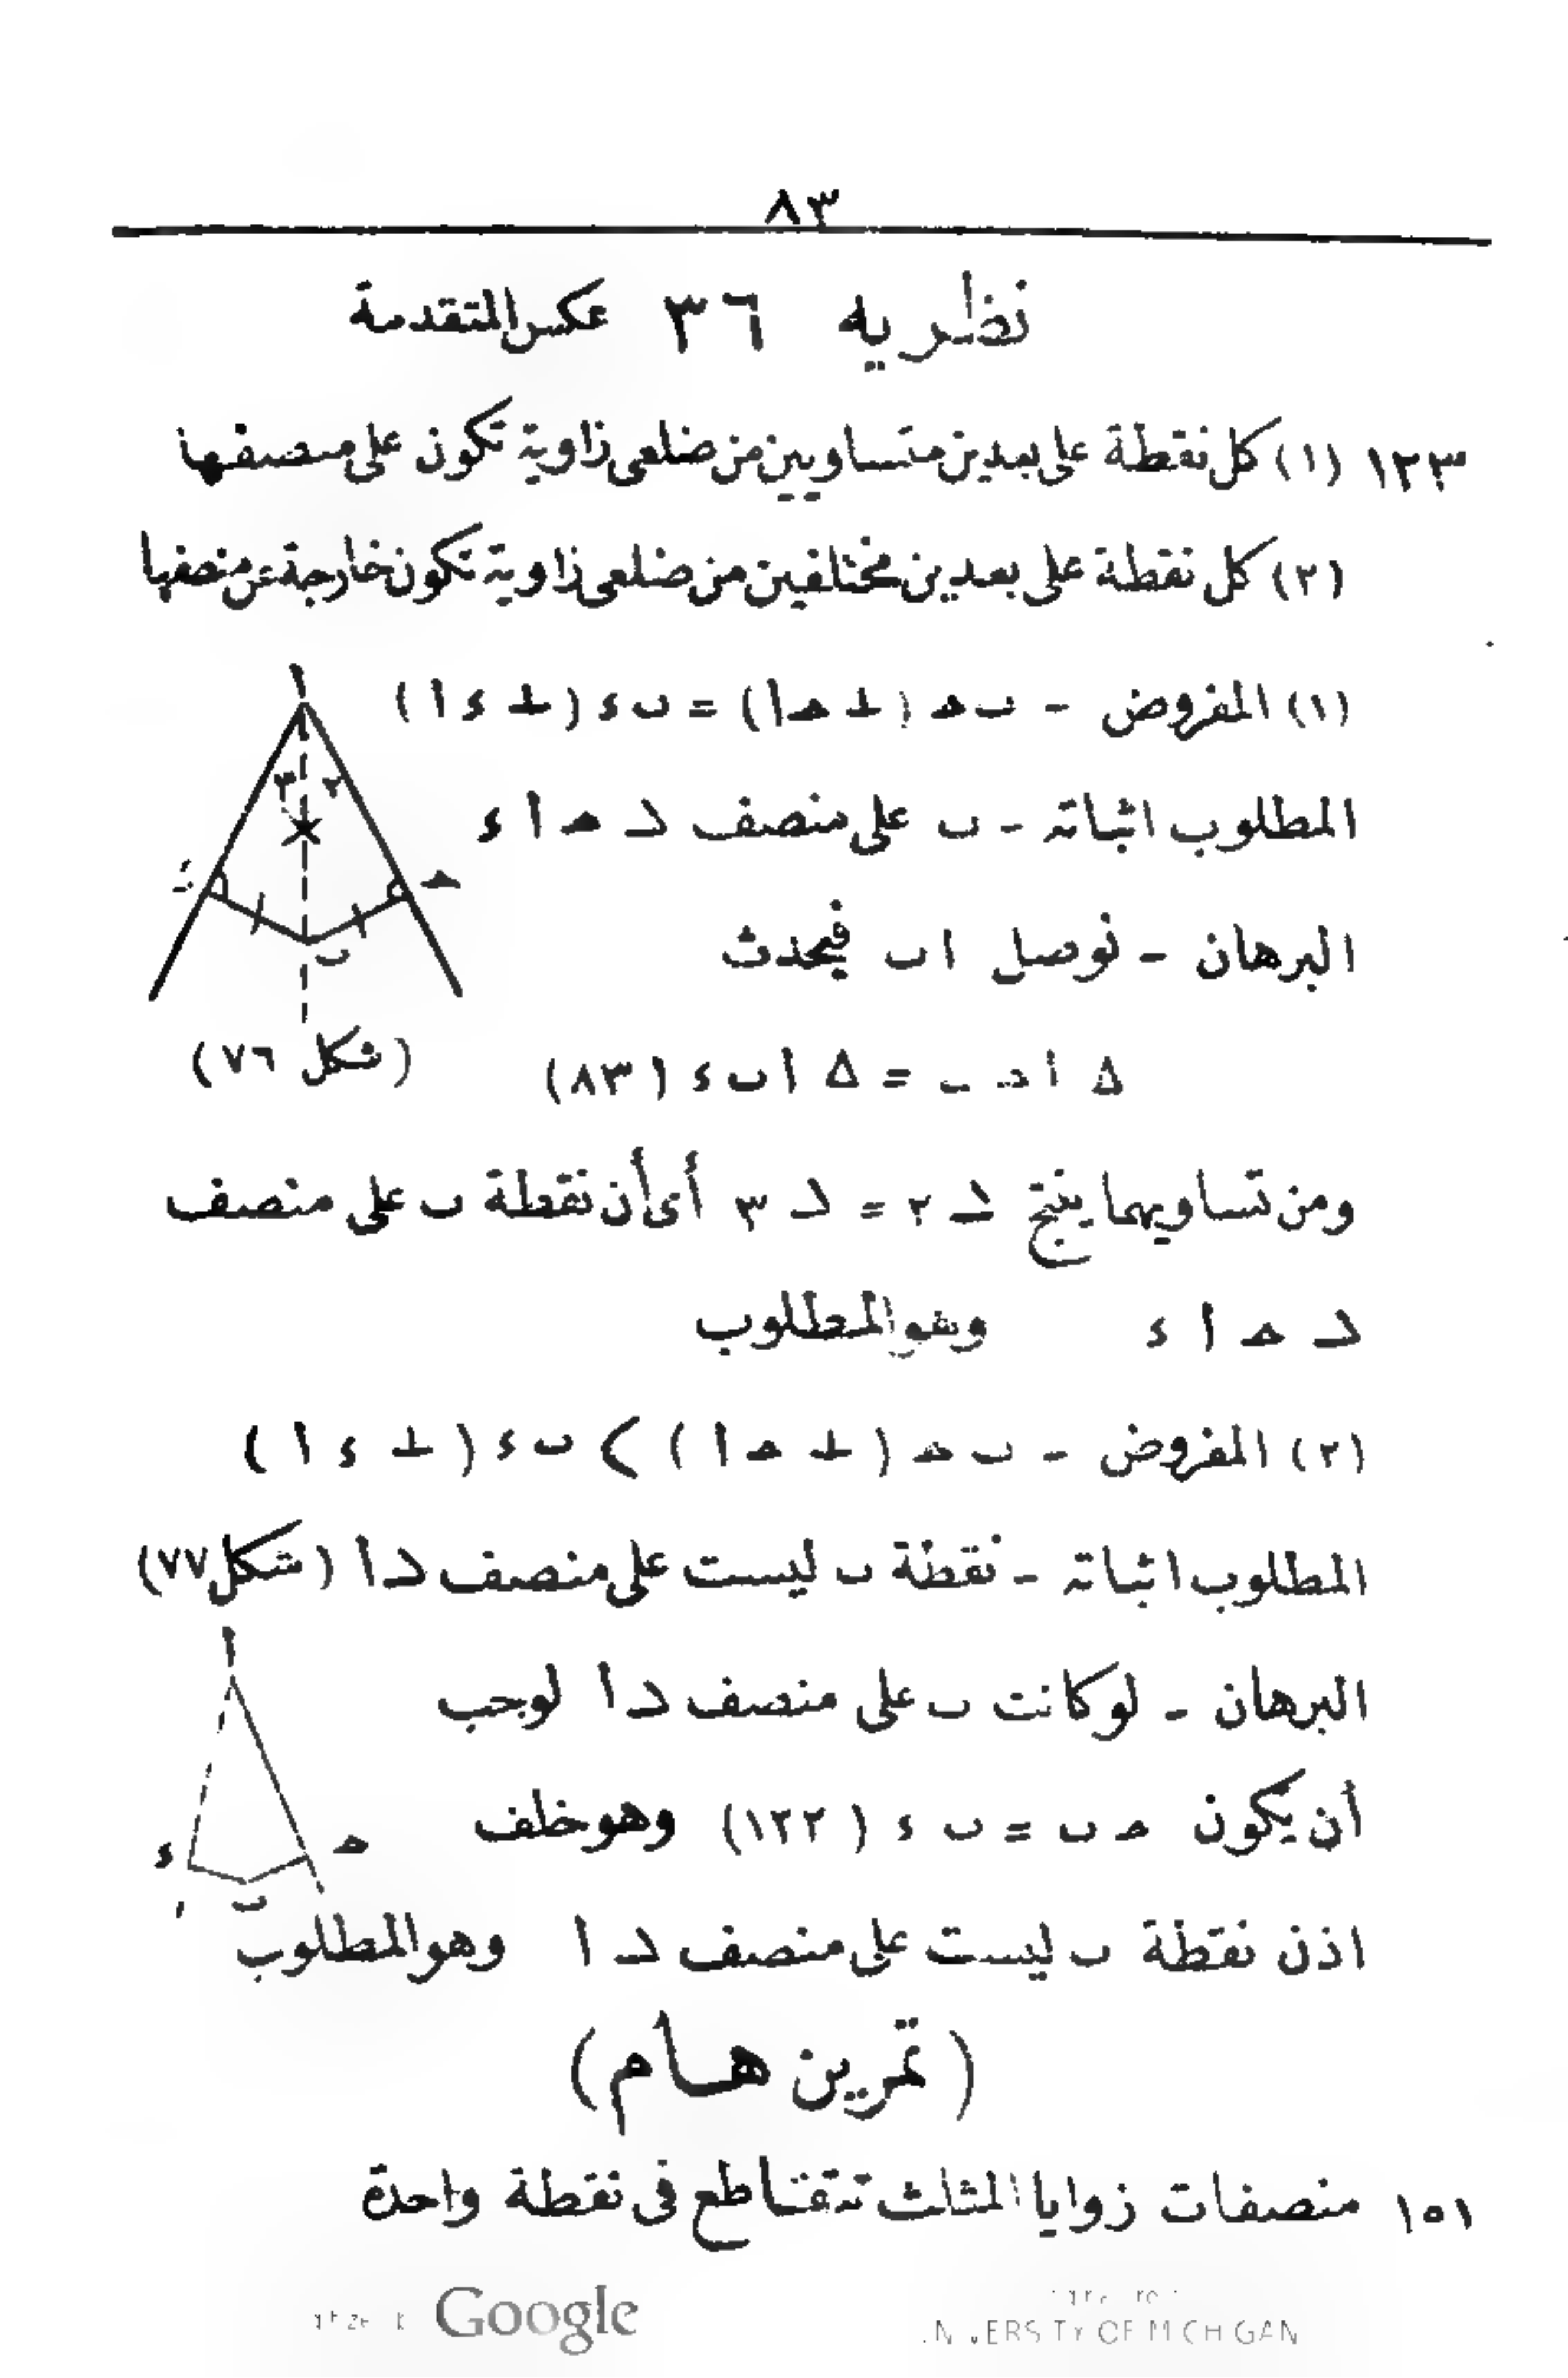 ٨٣
نظريه ٣٦ عكس المتقدمة
١٢٣ (١) كل نقطة على بعدين متساويين من ضلعى زاوية تكون على منصفها
(٢) كل نقطة على بعدين مختلفين من ضلعى زاوية تكون خارجة عن منصفها
(١) المفروض - ب ھ (⊥ ھ ا) = ب ء (⊥ ء ا)
المطلوب اثباته - ب على منصف د ھ ا ء
البرهان - نوصل اب فيحدث
(شكل ٧٦)
∆ ا ھ ب = ∆ اب ء (٨٣)
ومن تساويهما ينتج د ٢ = د ٣ أى أن نقطة ب على منصف
د ھ ا ء وهو المطلوب
(٢) المفروض - ب ھ (⊥ ھ ا) > ب ء (⊥ ء ا)
المطلوب اثباته - نقطة ب ليست على منصف د ا (شكل ٧٧)
البرهان - لو كانت ب على منصف د ا لوجب
أن يكون ھ ب = ب ء (١٢٢) وهو خلف
اذن نقطة ب ليست على منصف د ا وهو المطلوب
(تمرين هام)
١٥١ منصفات زوايا المثلث تتقاطع فى نقطة واحدة
ا
٣ ٢
ء ھ
ب
ا
ء ھ
ب
Google
UNIVERSITY OF MICHIGAN